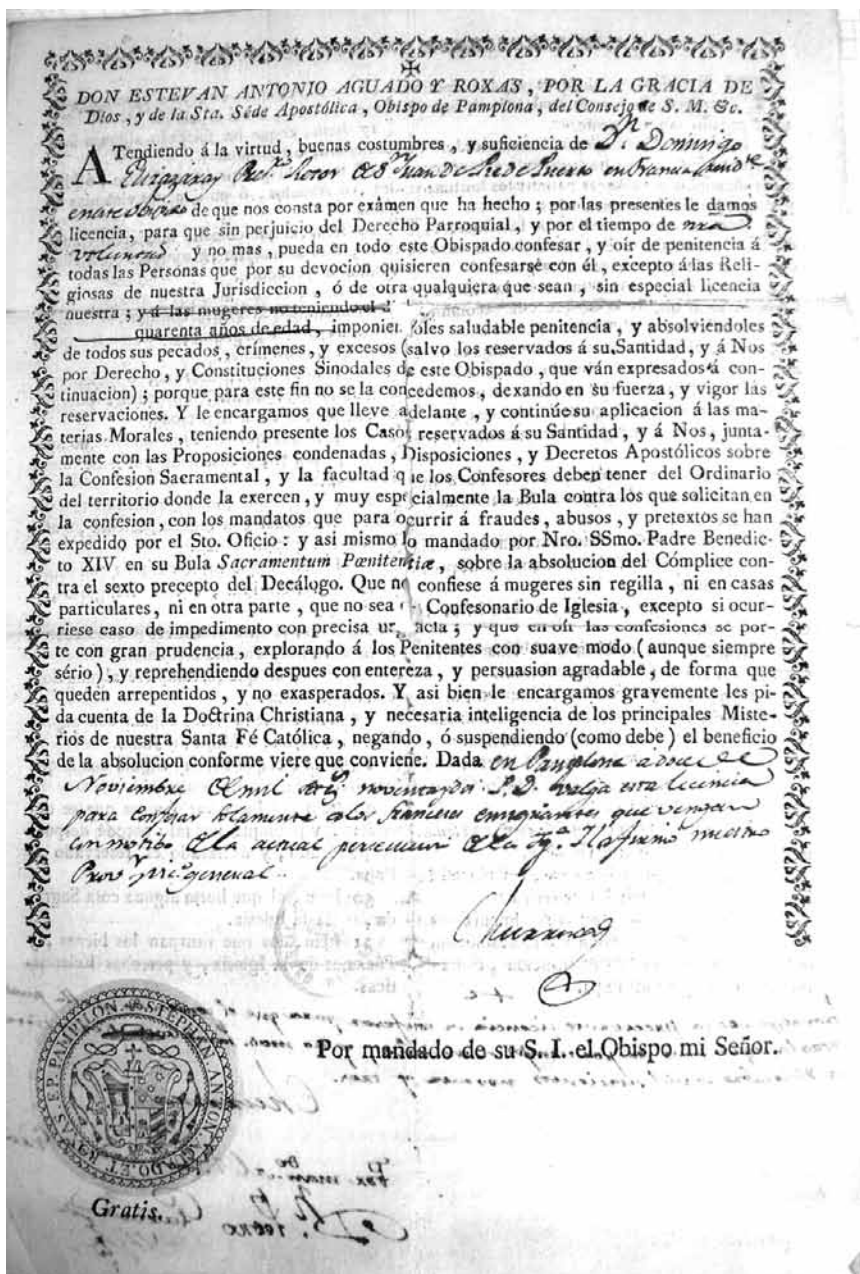 DON ESTEVAN ANTONIO AGUADO Y ROXAS, POR LA GRACIA DE
Dios, y de la Sta. Séde Apostólica, Obispo de Pamplona, del Consejo de S. M. &c.
ATendiendo á la virtud, buenas costumbres, y suficiencia de Dn. Domingo
Juan De Pie de Puerto en Francia
de que nos consta por exámen que ha hecho; por las presentes le damos
licencia, para que sin perjuicio del Derecho Parroquial, y por el tiempo de nra
voluntad y no mas, pueda en todo este Obispado confesar, y oír de penitencia á
todas las Personas que por su devocion quisieren confesarse con él, excepto á las Reli-
giosas de nuestra Jurisdiccion, ó de otra qualquiera que sean, sin especial licencia
nuestra; y á las mugeres no teniendo el
quarenta años de edad, imponiendoles saludable penitencia, y absolviendoles
de todos sus pecados, crímenes, y excesos (salvo los reservados á su Santidad, y á Nos
por Derecho, y Constituciones Sinodales de este Obispado, que ván expresados á con-
tinuacion); porque para este fin no se la concedemos, dexando en su fuerza, y vigor las
reservaciones. Y le encargamos que lleve adelante, y continúe su aplicacion á las ma-
terias Morales, teniendo presente los Casos reservados á su Santidad, y á Nos, junta-
mente con las Proposiciones condenadas, Disposiciones, y Decretos Apostólicos sobre
la Confesion Sacramental, y la facultad que los Confesores deben tener del Ordinario
del territorio donde la exercen, y muy especialmente la Bula contra los que solicitan en
la confesion, con los mandatos que para ocurrir á fraudes, abusos, y pretextos se han
expedido por el Sto. Oficio: y asi mismo lo mandado por Nro. SSmo. Padre Benedic-
to XIV en su Bula Sacramentum Pœnitentiæ, sobre la absolucion del Cómplice con-
tra el sexto precepto del Decálogo. Que no confiese á mugeres sin regilla, ni en casas
particulares, ni en otra parte, que no sea Confesonario de Iglesia, excepto si ocur-
riese caso de impedimento con precisa; y que en oír las confesiones se por-
te con gran prudencia, explorando á los Penitentes con suave modo (aunque siempre
sério), y reprehendiendo despues con entereza, y persuasion agradable, de forma que
queden arrepentidos, y no exasperados. Y asi bien le encargamos gravemente les pi-
da cuenta de la Doctrina Christiana, y necesaria inteligencia de los principales Miste-
rios de nuestra Santa Fé Católica, negando, ó suspendiendo (como debe) el beneficio
de la absolucion conforme viere que conviene. Dada en Pamplona a doce de
Noviembre mil noventa y dos P.D. valga esta licencia
para confesar solamente a los franceses emigrantes que vengan
con motibo de la actual persecucion de la Yga. I la firmó nuestro
Provr. general
Por mandado de su S. I. el Obispo mi Señor.
STEPHAN. ANTON. AGUADO. ET. ROXAS. EP. PAMPILON.
Gratis.